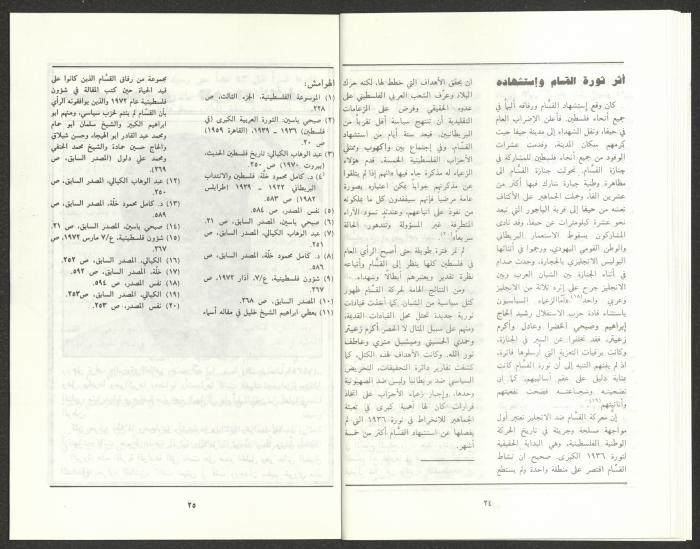 أثر ثورة القسام وإستشهاده
كان وقع إستشهاد القسَّام ورفاقه أليماً في
جميع أنحاء فلسطين. فأعلن الإضراب العام
في حيفا، ونقل الشهداء إلى مدينة حيفا حيث
كرمهم سكان المدينة، وقدمت عشرات
الوفود من جميع أنحاء فلسطين للمشاركة في
جنازة القسَّام. تحولت جنازة القسَّام إلى
مظاهرة وطنية جبارة شارك فيها أكثر من
عشرين ألفاً، وحملت الجماهير على الأكتاف
نعشه من حيفا إلى قرية الياجور التي تبعد
نحو عشرة كيلومترات عن حيفا، وقد نادى
المشاركون بسقوط الاستعمار البريطاني
والوطن القومي اليهودي، ورجموا في أثنائها
البوليس الانجليزي بالحجارة. وحدث صدام
في أثناء الجنازة بين الشبان العرب وبين
الانجليز جرح على إثره ثلاثة من الانجليز
وعربي واحد(١٨). أمّا الزعماء السياسيون
باستثناء قادة حزب الاستقلال رشيد الحاج
إبراهيم وصبحي الخضرا وعادل وأكرم
زعيتر، فقد تخلفوا عن السير في الجنازة،
وكانت برقيات التعزية التي أرسلوها فاترة،
اذ لم يفتهم التنبه إلى أن ثورة القسَّام كانت
بمثابة دليل على عقم أساليبهم، كما إن
تضحيته وشجاعته فضحت نفعيتهم
وأنانيتهم(١٩).
إن معركة القسَّام ضد الانجليز تعتبر أول
مواجهة مسلحة وجريئة في تاريخ الحركة
الوطنية الفلسطينية، وهي البداية الحقيقية
لثورة ١٩٣٦ الكبرى. صحيح أن نشاط
القسَّام اقتصر على منطقة واحدة ولم يستطع
٢٤
ان يحقق الأهداف التي خطط لها، لكنه حرك
البلاد وعرّف الشعب العربي الفلسطيني على
عدوه الحقيقي وفرض على الزعامات
التقليدية أن تنتهج سياسة أقل تقرباً من
البريطانيين. فبعد ستة أيام من استشهاد
القسَّام، وفي إجتماع بين واكهوب وممثلي
الأحزاب الفلسطينية الخمسة، قدم هؤلاء
الزعماء له مذكرة جاء فيها «انهم إذا لم يتلقوا
عن مذكرتهم جواباً يمكن اعتباره بصورة
عامة مرضياً فإنهم سيفقدون كل ما يملكونه
من نفوذ على اتباعهم، وعندئذ تسود الآراء
المتطرفة غير المسؤولة وتتدهور الحالة
سريعاً(٢٠).
لم تمر فترة طويلة حتى أصبح الرأي العام
في فلسطين كلها ينظر إلى القسَّام وأتباعه
نظرة تقدير ويعتبرهم أبطالاً وشهداء.
ومن النتائج الهامة لحركة القسَّام ظهور
كتل سياسية من الشبان. كما أخذت قيادات
ثورية جديدة تحتل محل القيادات القديمة،
ومنهم على سبيل المثال لا الحصر أكرم زعيتر
وحمدي الحسيني وميشيل متري وعاطف
نور الله. وكانت الأهداف لهذه الكتل، كما
كشفت تقارير دائرة التحقيقات، التحريض
السياسي ضد بريطانيا وليس ضد الصهيونية
وحدها، وإجبار زعماء الأحزاب على اتخاذ
قرارات كان لها أهمية كبرى في تعبئة
الجماهير للانخراط في ثورة ١٩٣٦ التي لم
يفصلها عن استشهاد القسَّام أكثر من خمسة
أشهر.
الهوامش:
(١) الموسوعة الفلسطينية. الجزء الثالث، ص
٢٢٨.
(٢) صبحي ياسين، الثورة العربية الكبرى (في
فلسطين) ١٩٣٦ - ١٩٣٩، (القاهرة ١٩٥٩)
ص ٢٠.
(٣) عبد الوهاب الكيالي، تاريخ فلسطين الحديث،
(بيروت ١٩٧٠) ص ٢٥٠.
(٤) د. كامل محمود خلّة، فلسطين والانتداب
البريطاني ١٩٢٢ - ١٩٣٩ (طرابلس
١٩٨٢) ص ٥٨٣.
(٥) نفس المصدر، ص ٥٨٤.
(٦) صبحي ياسين، المصدر السابق، ص ٢١.
(٧) عبد الوهاب الكيالي، المصدر السابق، ص
٢٥١.
(٨) د. كامل محمود خلّة، المصدر السابق، ص
٥٨٦.
(٩) شؤون فلسطينية، ع/٧، أذار ١٩٧٢، ص
٢٦٧.
(١٠) المصدر السابق، ص ٢٦٨.
(١١) يعطي ابراهيم الشيخ خليل في مقاله أسماء
مجموعة من رفاق القسَّام الذين كانوا على
قيد الحياة حين كتب المقالة في شؤون
فلسطينية عام ١٩٧٢ والذين يوافقونه الرأي
بأن القسَّام لم ينتم لحزب سياسي، ومنهم ابو
ابراهيم الكبير والشيخ سلمان أبو حمام
ومحمد عبد القادر ابو الهيجاء وحسن شبلاق
والحاج حسين حمادة والشيخ محمد الحنفي
ومحمد علي دلول (المصدر السابق، ص
٢٦٩).
(١٢) عبد الوهاب الكيالي، المصدر السابق، ص
٢٥٠.
(١٣) د. كامل محمود خلّة، المصدر السابق، ص
٥٨٦.
(١٤) صبحي ياسين، المصدر السابق، ص ٢١.
(١٥) شؤون فلسطينية، ع/٧ مارس ١٩٧٢، ص
٢٦٧.
(١٦) الكيالي، المصدر السابق، ص ٢٥٢.
(١٧) خلّة، المصدر السابق، ص ٥٩٢.
(١٨) نفس المصدر، ص ٥٩٤.
(١٩) الكيالي، المصدر السابق، ص ٢٥٣.
(٢٠) نفس المصدر، ص ٢٥٣.
٢٥